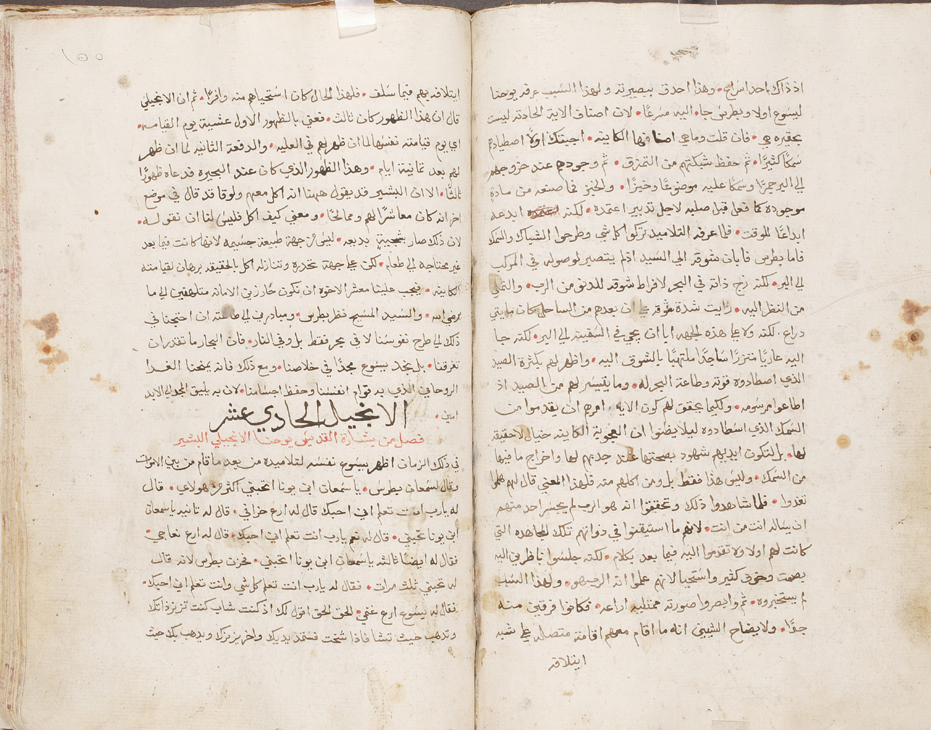 اذ ذاك احد اس لهم • وهذا احدق ببصيرته ولهذا السبب عرفه يوحنا
ليسوع اولا وبطرس جاء اليه مسرعًا • لان اصناف الاية الحادثه ليست
بحقيره هي • فان قلت وما هي اصنافها الكاينه • اجبتك اولاً اصطيادهم
سمكًا كثيرًا • ثم حفظ شبكتهم من التمزق • ثم وجودهم عند خروجهم
الى البر جمرًا وسمكًا عليه موضوعًا وخبزًا • والخبز فما صنعه من مادة
موجوده كما فعل قبل صلبه لاجل تدبير اعتمده • لكنه ابدعه
ابداعًا للوقت • فلما عرفه التلاميد تركوا كل شي وطرحوا الشباك والسمك
فاما بطرس فابان شوقه الى السيد اذ لم ينتصير لوصوله في المركب
الى البر • لكنه زج ذاته في البحر لافراط شوقه للدنو من الرب •
من النظر اليه • رايت شدة شوقه على ان بعدهم من الساحل كان مايتي
دراع • لكنه ولا على هذه الجهه ابا ان يجي في السفينه الى البر • لكنه جا
اليه عاريًا متزرًا ملتهبًا بالشوق اليه • واظهر لهم بكثرة الصيد
الذي اصطادوه قوته وطاعة البحر له • وما يتيسر لهم من الصيد اذ
اطاعوا مرسومه • ولكيما يحقق لهم كون الايه امرهم ان يقدموا من
السمك الذي اصطادوه ليلا يضنوا ان العجوبة الكاينه خيال لا حقيقة
لها • بل لتكون ايديهم شهود بصحتها عند جدبهم لها واخراج ما فيها
من السمك • وليس هذا فقط بل ومن اكلهم منه فلهذا المعنى قال لهم هلموا
تغدوا • فلما شاهدوا ذلك وتحققوا انه هو الرب لم يجسر احد منهم
ان يساله انت من انت • لانهم ما استيقنوا في دواتهم تلك المجاهره التي
كانت لهم اولا ولا تقدموا اليه فيما بعد بكلام • لكنه جلسوا ناظرين اليه
بصمت وخوف كثير واستحيا لانهم علموا انه الرب هو • ولهذا السبب
لم يستخبروه • ثم وابصروا صورته ممتليه اراعه • فكانوا فرقين منه
جدًا • ولايضاح التبيين انه ما اقام معهم اقامة متصله على شبه
ايتلافه
١٥٥
ايتلافه بهم فيما سلف • فلهذا الحال كان استحياهم منه وافرًا • ثم ان الانجيلي
قال ان هذا الظهور كان ثالث • فعنى بالظهور الاول عشية يوم القيامه •
اي يوم قيامته نفسها لما ان ظهر لهم في العليه • والدفعة الثانيه لما ان ظهر
لهم بعد ثمانية ايام • وهذا الظهور الذي كان عند البحيره قد عاه ظهورًا
ثالثًا • الا ان البشير قد يقول ههنا انه اكل معهم ولوقا قد قال في موضع
اخر انه كان معاشرًا لهم ومالحًا • ومعنى كيف اكل فليس لنا ان نقوله •
لان ذلك صار بعجيبة بديعه • ليس من جهة طبيعة جسيمه لانها كانت فيما بعد
غير محتاجه الى طعام • لكن على جهة تحدره وتنازله اكل بالحقيقه برهان لقيامته
الكاينه • فيجب علينا معشر الاخوه ان نكون حارزين الامانه متلهفين الى ما
يرضي الله • والسيد المسيح نظر بطرس • ومبادرين الى ان احتجنا في
ذلك الى طرح نفوسنا لا في بحر فقط بل وفي النار • فان البحار ما تقتدر ان
تغرقنا • بل يتخد يسوع مجدًا في خلاصنا • ومع ذلك فانه يمنحنا الغدا
الروحاني الذي به قوام انفسنا وحفظ اجسامنا • لان به يليق المجد الى الابد
امين •
الانجيل الحادي عشر
فصل من بشارة القديس يوحنا الانجيلي البشير
في ذلك الزمان اظهر يسوع نفسه لتلاميده من بعد ما قام من بين الاموات
وقال لسمعان بطرس • يا سمعان ابن يونا اتحبني اكثر من هولاي • قال
له يارب انت تعلم اني احبك قال له ارع خرافي • قال له ثانيه يا سمعان
ابن يونا تحبني • قال له نعم يارب انت تعلم اني احبك • قال له ارع نعاجي •
فقال له ايضا ثالثه يا سمعان ابن يونا اتحبني • فحزن بطرس لانه قال
له تحبني ثلث مرات • فقال له يارب انت تعلم كل شي وانت تعلم اني احبك •
فقال له يسوع ارع غنمي • الحق الحق اقول لك اذ كنت شاب كنت تزنر ذاتك
وتدهب حيث تشا فاذا شخت فستمد يديك واخر يزنرك ويدهب بك حيث